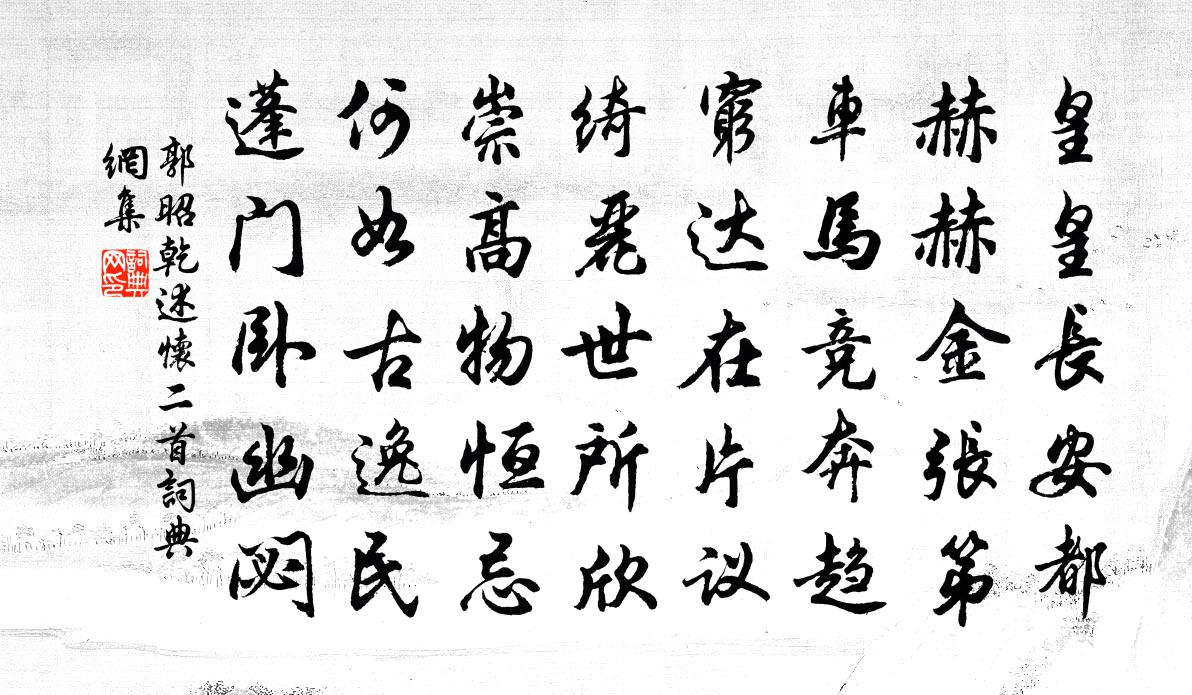 皇皇長安都
赫赫金張第
車馬競奔趋
窮达在片议
绮麗世所欣
崇高物恒忌
何如古逸民
蓬门卧幽閟
郭昭乾述懷二首詞典
網集
詞典
网印